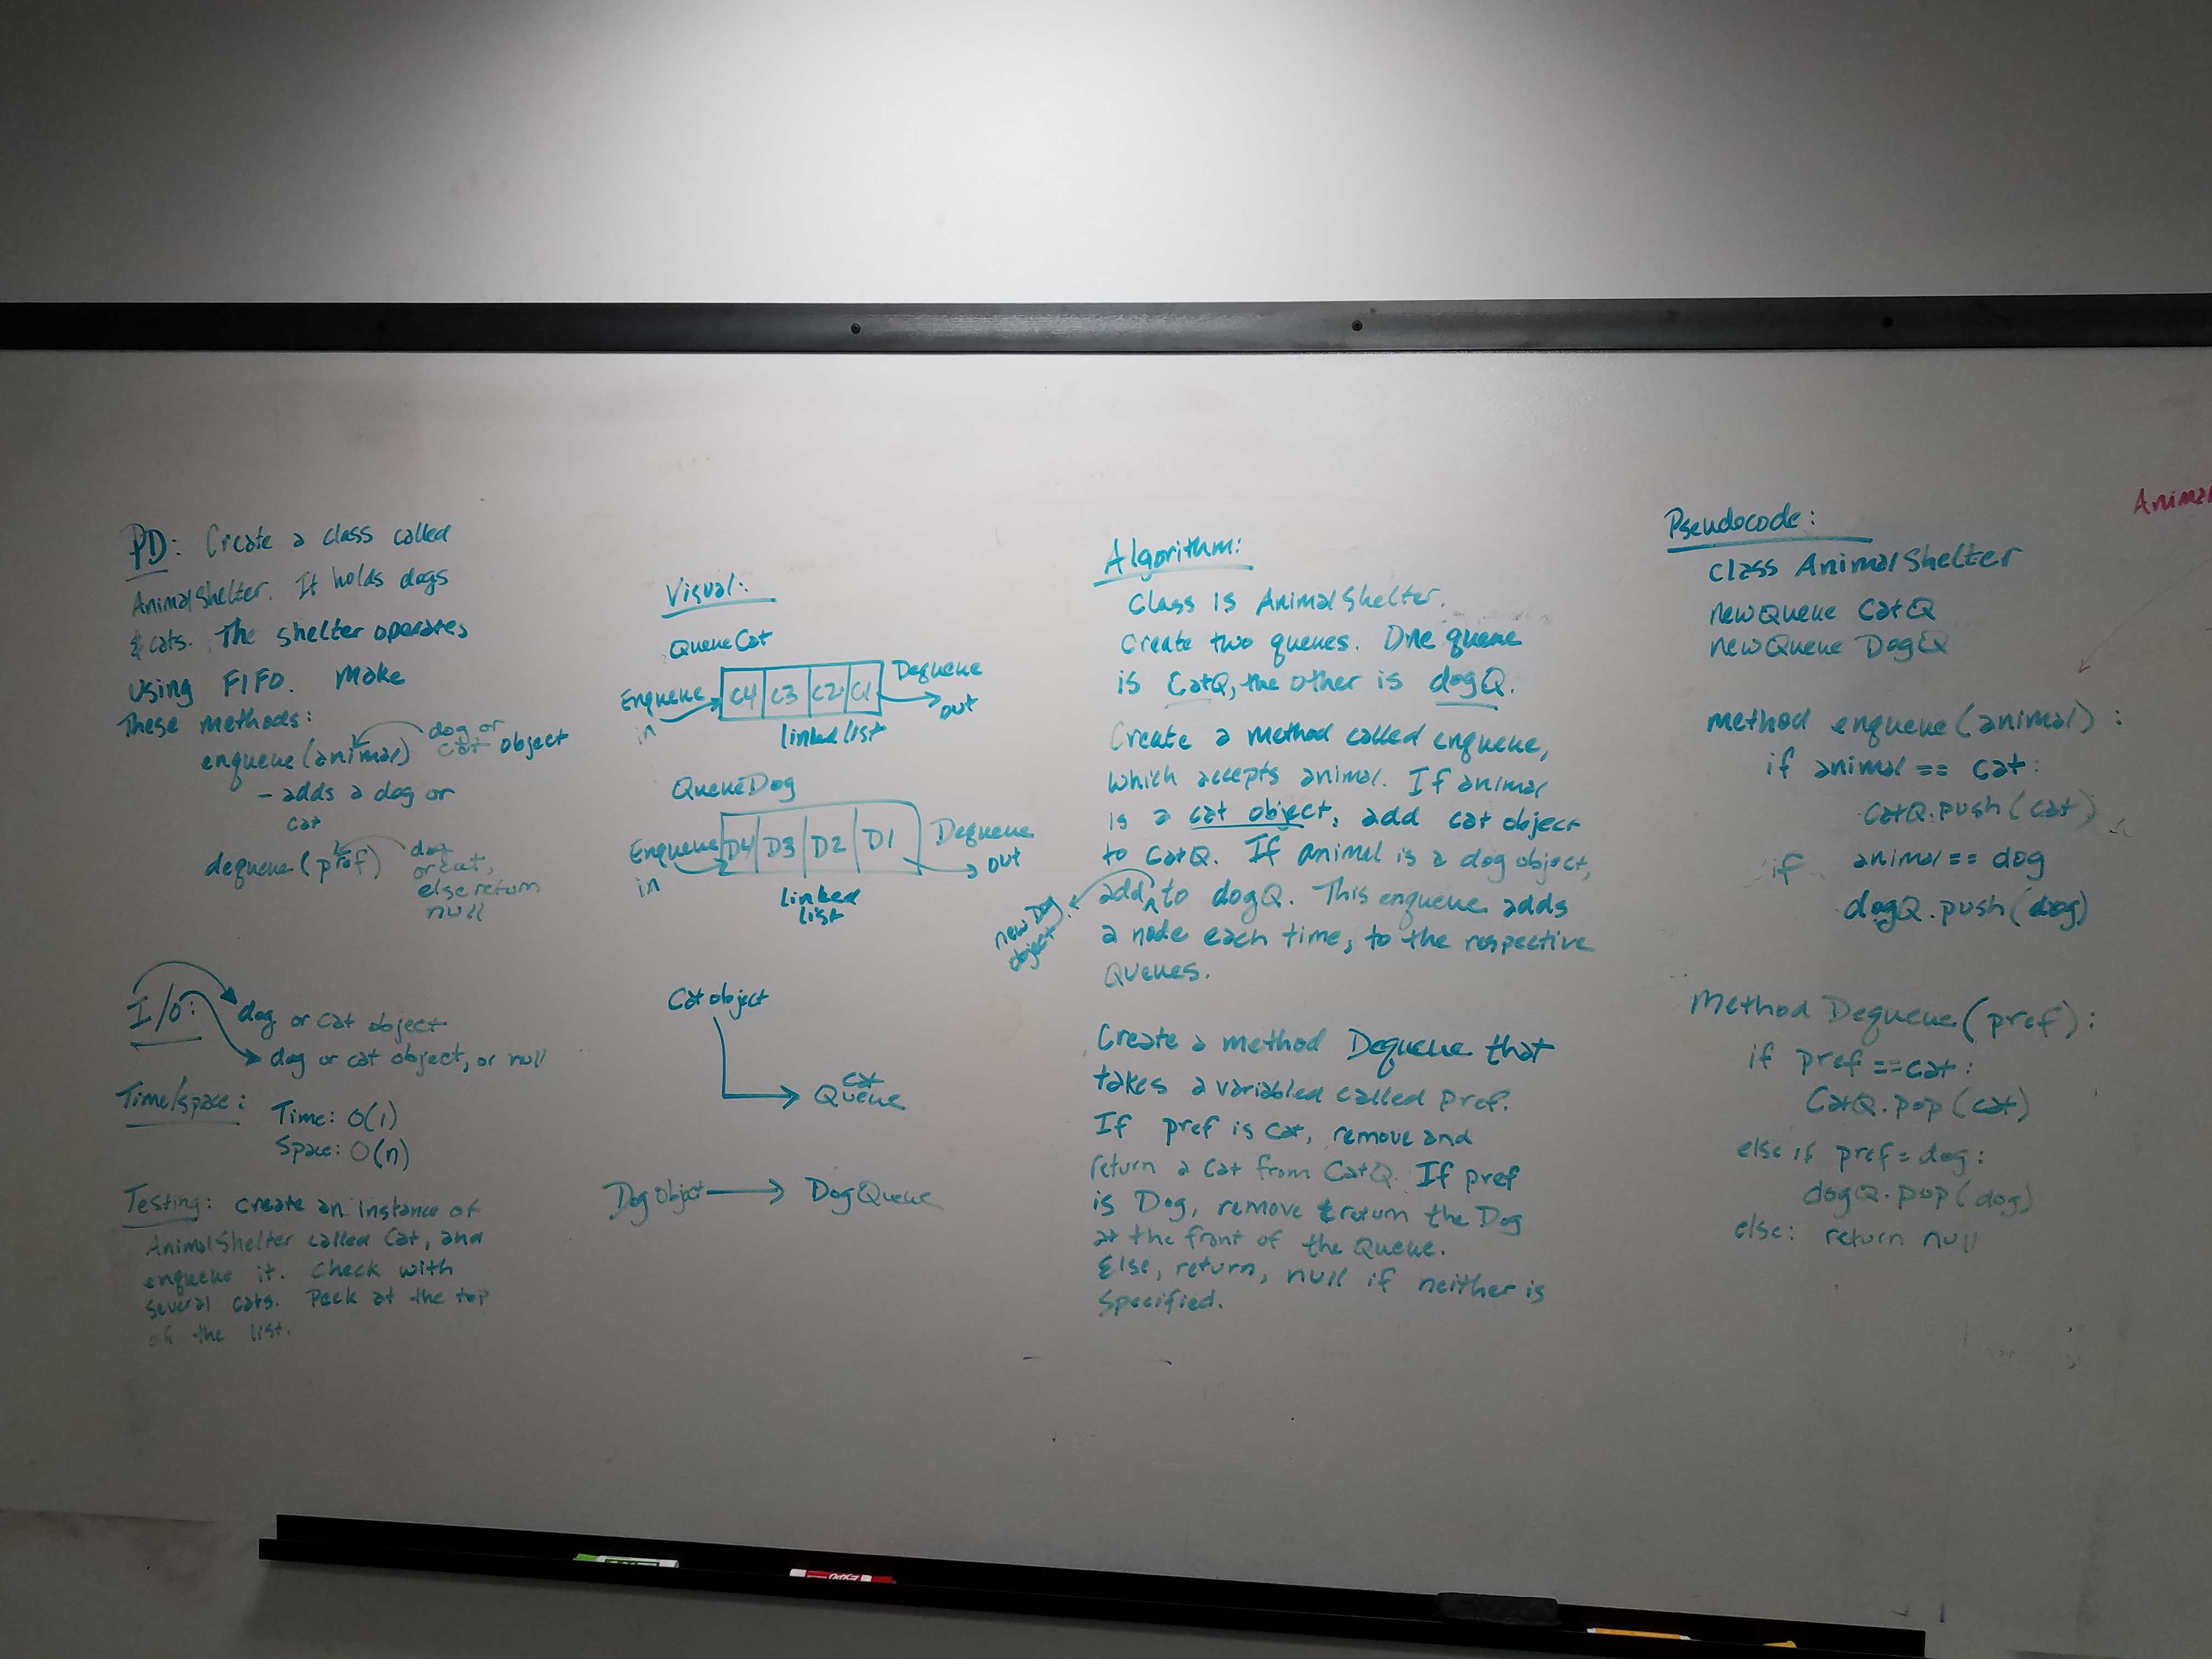 PD: Create a class called
AnimalShelter. It holds dogs
& cats. The shelter operates
using FIFO. Make
These methods:
enqueue(animal)
dog or
cat object
- adds a dog or
cat
dequeue(pref)
dog
or cat,
else return
null
I/O:
dog or cat object
dog or cat object, or null
Time/space:
Time: O(1)
Space: O(n)
Testing: Create an instance of
AnimalShelter called Cat, and
enqueue it. Check with
several cats. Peek at the top
of the list.
Visual:
QueueCat
Enqueue
in
C4 C3 C2 C1
Dequeue
out
linked list
QueueDog
Enqueue
in
D4 D3 D2 D1
Dequeue
out
linked
list
Cat object
cat
Queue
Dog object
Dog Queue
Algorithm:
Class is AnimalShelter.
Create two queues. One queue
is CatQ, the other is dogQ.
Create a method called enqueue,
which accepts animal. If animal
is a cat object, add cat object
to CatQ. If animal is a dog object,
add ^ to dogQ. This enqueue adds
new Dog
object
a node each time, to the respective
Queues.
Create a method Dequeue that
takes a variabled called pref.
If pref is cat, remove and
return a cat from CatQ. If pref
is Dog, remove & return the Dog
at the front of the Queue.
Else, return, null if neither is
specified.
Pseudocode:
class AnimalShelter
newQueue CatQ
newQueue DogQ
method enqueue(animal):
if animal == cat:
CatQ.push(cat)
if animal == dog
dogQ.push(dog)
Method Dequeue(pref):
if pref == cat:
CatQ.pop(cat)
else if pref = dog:
dogQ.pop(dog)
else: return null
EXPO